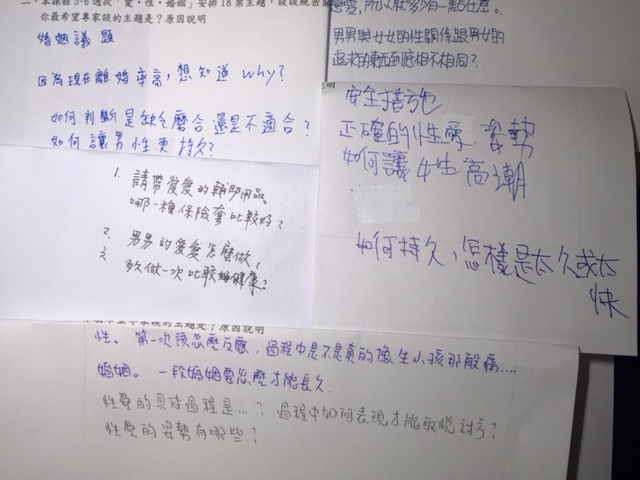 二、本課程5-6週從「愛、性、婚姻」安排18禁主題，談談親密關
你最希望專家談的主題是？原因說明
婚姻議題
因為現在離婚率高，想知道 why?
如何判斷是缺乏磨合還是不適合？
如何讓男性更持久？
愛愛，所以就多有一點在意。
男男與女女的性關係跟男女的
追求的東西到底相不相同？
1. 請帶愛愛的輔助用品。
哪一種保險套比較好？
2. 男男的愛愛怎麼做？
3 多久做一次比較健康？
說明
安全措施
正確的性愛姿勢
如何讓女生高潮
如何持久，怎樣是太久或太
快
希望專家談的主題是？原因說明
性。第一次該怎麼反應，過程中是不是真的像生小孩那般痛....
婚姻。一段婚姻要怎麼才能長久.
性愛的具體過程是...？過程中如何表現才能取悅對方？
性愛的姿勢有哪些？